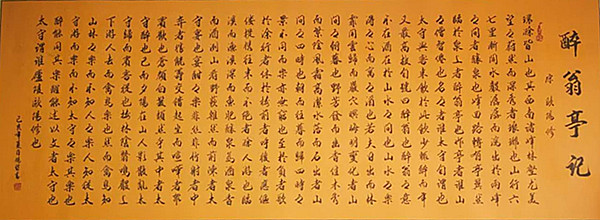 醉翁亭記
宋 歐陽修
環滁皆山也其西南諸峰林壑尤美
望之蔚然而深秀者瑯琊也山行六
七里漸聞水聲潺潺而瀉出於兩峰
之間者釀泉也峰回路轉有亭翼然
臨於泉上者醉翁亭也作亭者誰山
之僧智僊也名之者誰太守自謂也
太守與客來飲於此飲少輒醉而年
又最高故自號曰醉翁也醉翁之意
不在酒在乎山水之間也山水之樂
得之心而寓之酒也若夫日出而林
霏開雲歸而巖穴暝晦明變化者山
間之朝暮也野芳發而幽香佳木秀
而繁陰風霜高潔水落而石出者山
間之四時也朝而往暮而歸四時之
景不同而樂亦無窮也至於負者歌
於途行者休於樹前者呼後者應傴
僂提攜往來而不絕者滁人遊也臨
溪而漁溪深而魚肥釀泉為酒泉香
而酒洌山肴野蔌雜然而前陳者太
守宴也宴酣之樂非絲非竹射者中
弈者勝觥籌交錯起坐而喧嘩者眾
賓歡也蒼顏白髮頹然乎其中者太
守醉也已而夕陽在山人影散亂太
守歸而賓客從也樹林陰翳鳴聲上
下遊人去而禽鳥樂也然而禽鳥知
山林之樂而不知人之樂人知從太
守遊而樂而不知太守之樂其樂也
醉能同其樂醒能述以文者太守也
太守謂誰廬陵歐陽修也